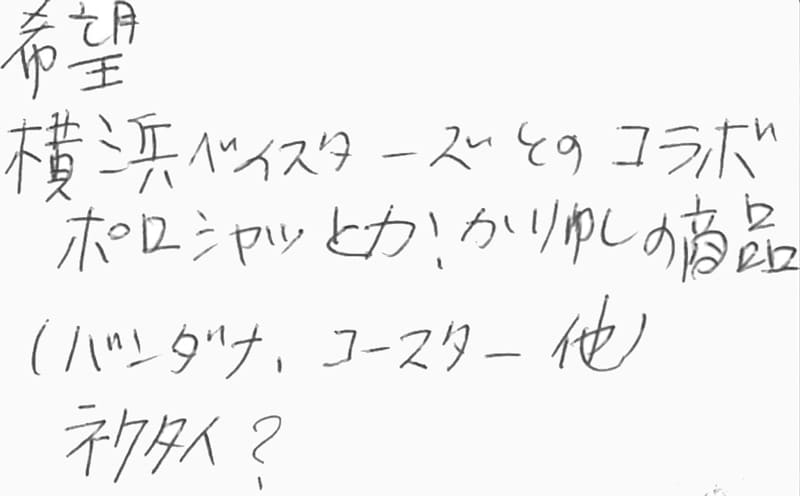 希望
横浜ベイスターズとのコラボ
ポロシャツとか!かりゆしの商品
(バンダナ、コースター他)
ネクタイ?